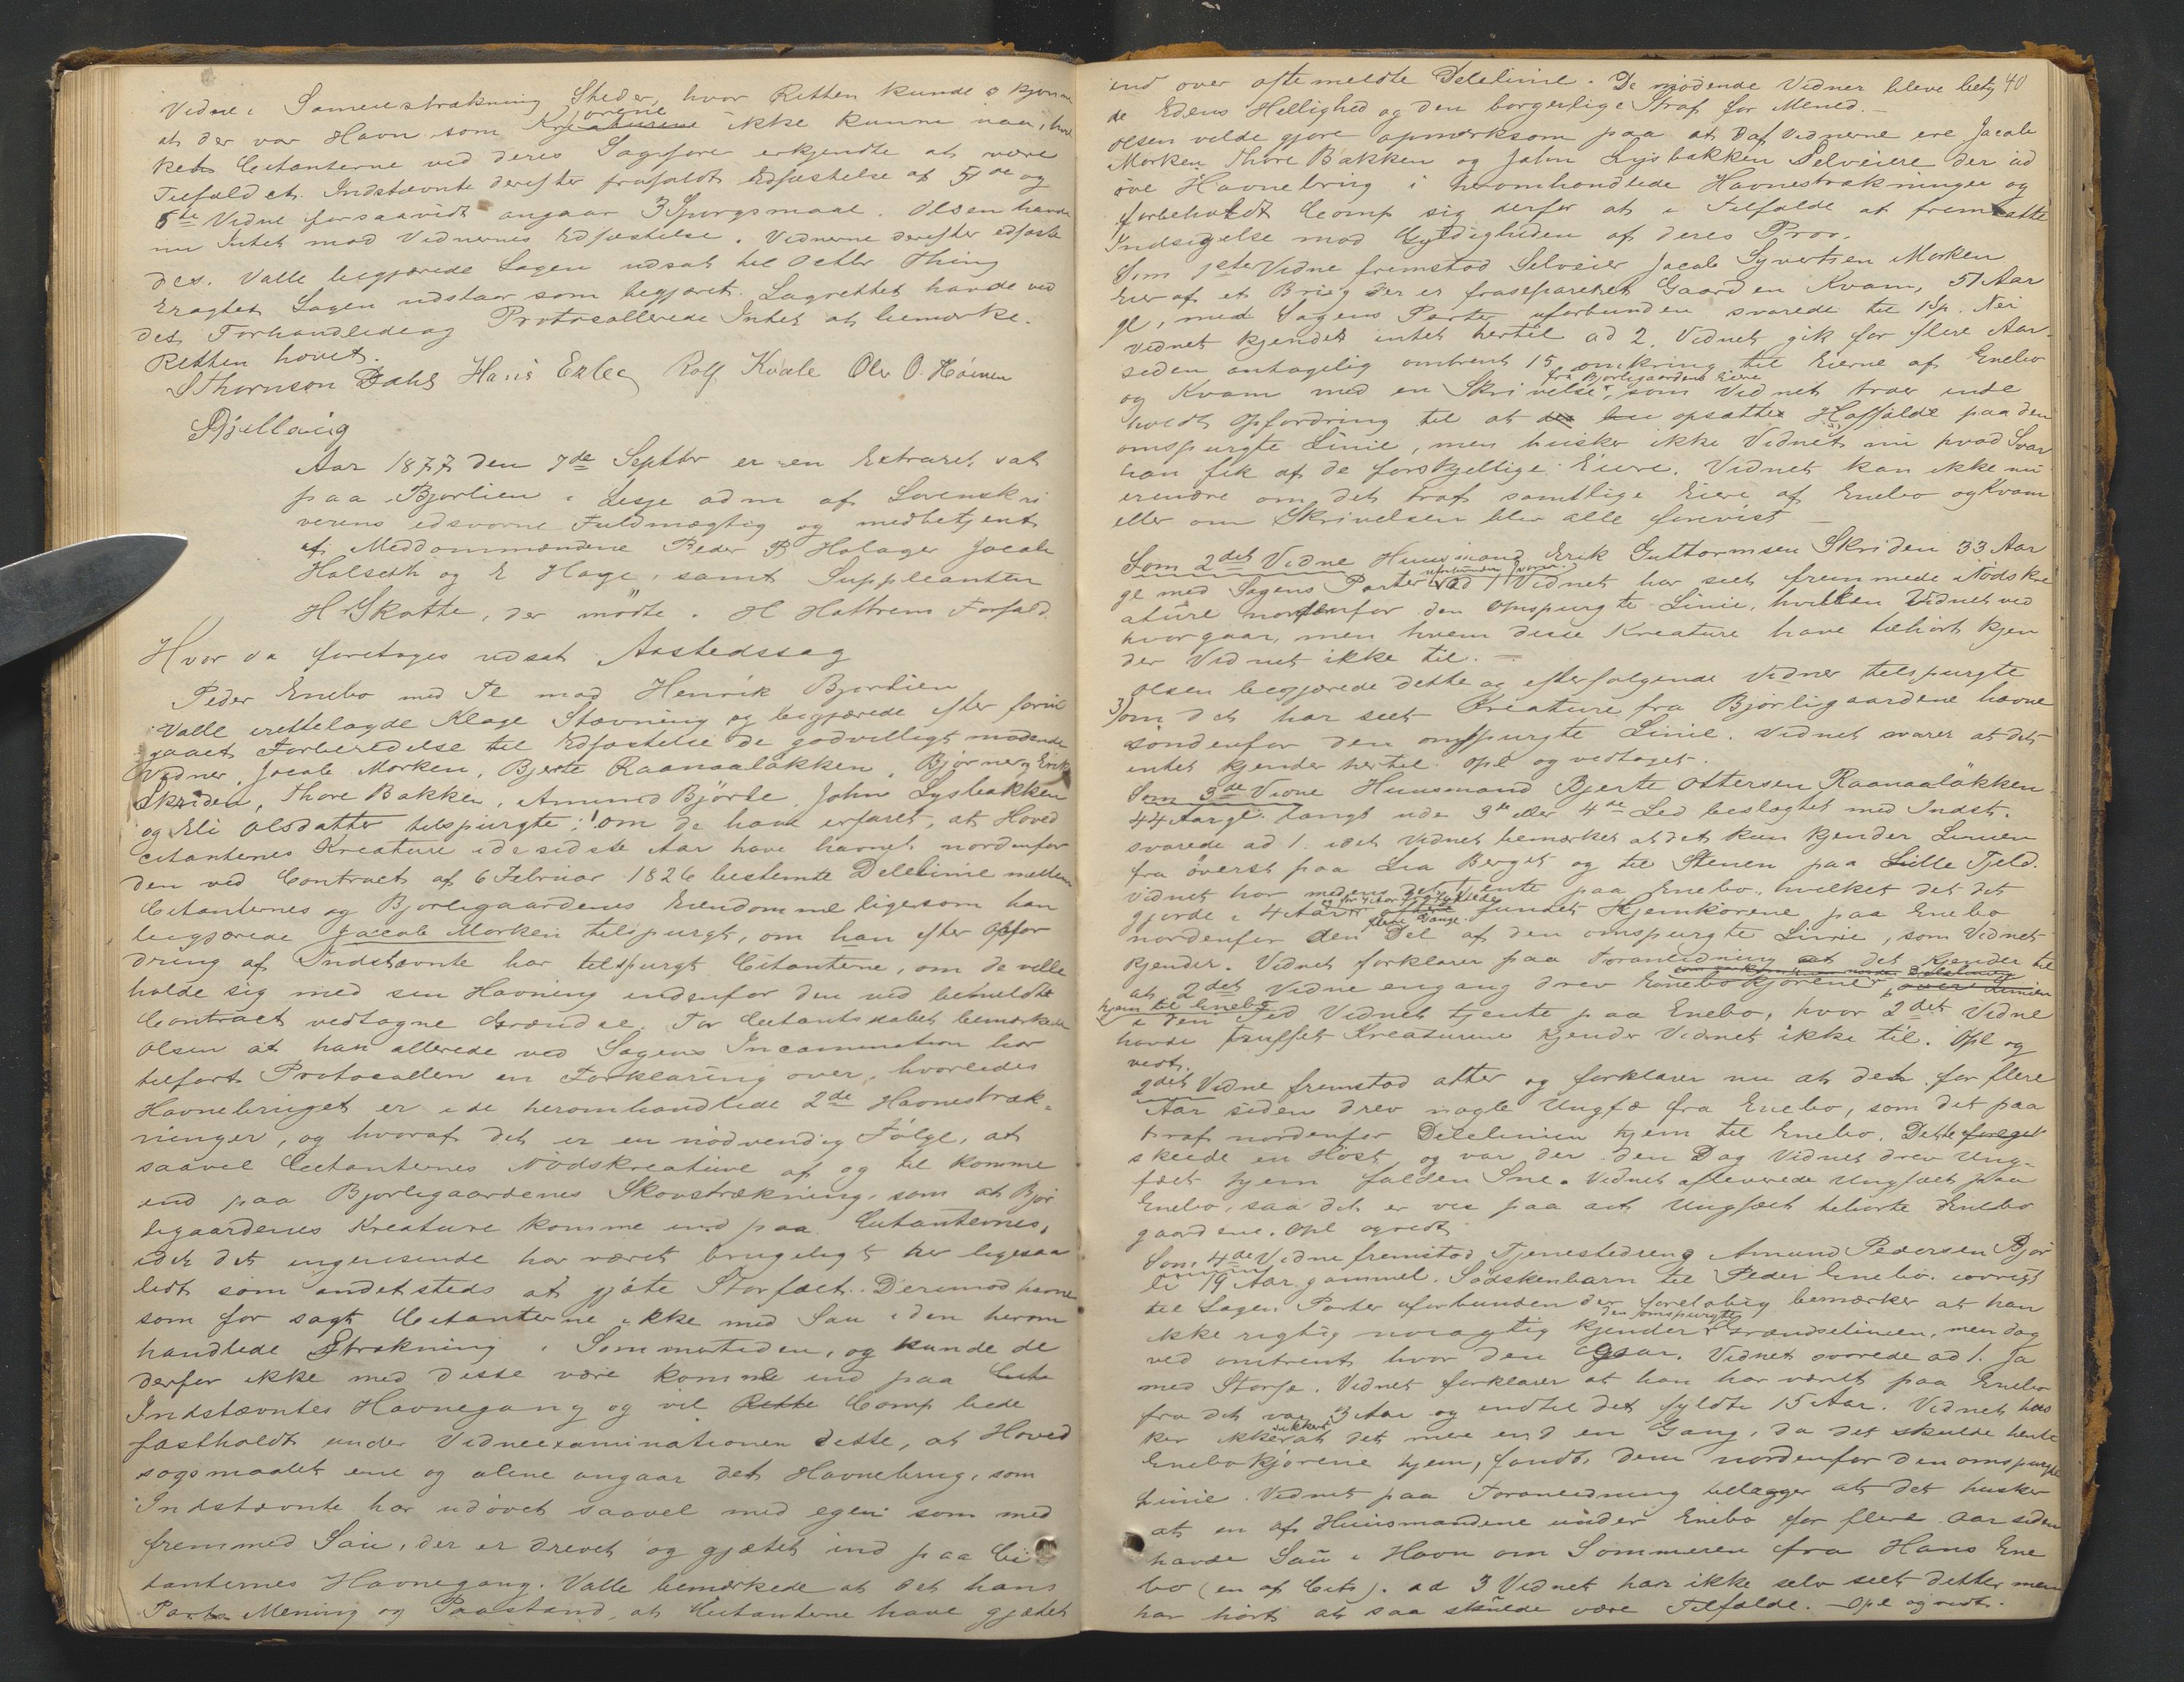 Vidne i Sameiestrækning Steder, hvor Retten kunde skjønne
at der var Havn som Kjørene ikke kunne naa, hvil
ket Citanterne ved deres Sagfører erkjendte at være
Tilfældet. Indstævnte derefter frafaldt Edfæstelse af 5te og
6te Vidne forsaavidt angaar 3 Spørgsmaal. Olsen havde
nu Intet mod Vidnernes Edfæstelse. Vidnerne derefter edfæste
des. Valle begjærede Sagen udsat til Octbr Thing
Eragtet Sagen udstaar som begjæret. Lagrettet havde ved
det Forhandlede og Protocollerede Intet at bemærke.
Retten hævet.
SThornson Dahl Hans Exlee Rolf Kvale Ole O. Høinen
Bjelland
Aar 1877 den 7de Septbr er en Extraret sat
paa Bjorlien i Lesje adm af Sorenskri
verens edsvorne Fuldmægtig og medbetjent
af Meddommændene Peder P Holager Jacob
Holseth og E Hage, samt Suppleanten
H Skotte, der mødte. H Hattrem Forfald.
Hvor da foretoges udsat Aastedssag
Peder Enebo med Fl mod Henrik Bjorlien
Valle irettelagde Klage Stævning og begjærede efter forud
gaaet Forberedelse til Edfæstelse de godvilligt mødende
Vidner, Jacob Morken, Bjerte Raanaaløkken, Bjørner, Erik
Skriden, Thore Bakken, Amund Bjørli, John Lysbakken
og Eli Olsdatter tilspurgte: 1 om de have erfaret, at Hoved
citanternes Kreature i de sidste Aar have havnet nordenfor
den ved Contract af 6 Februar 1826 bestemte Delelinie mellem
Citanternes og Bjorligaardenes Eiendomme ligesom han
begjærede Jacob Morken tilspurgt, om han efter Opfor
dring af Indstævnte har tilspurgt Citanterne, om de vilde
holde sig med sin Havning indenfor den ved bemeldte
Contract vedtagne Grændse. For Citantskabet bemærkede
Olsen at han allerede ved Sagens Incamination har
tilført Protocollen en Forklaring over, hvorledes
Havnebruget er i de heromhandlede 2de Havnestræk-
ninger, og hvoraf det er en nødvendig Følge, at
saavel Citanternes Nødskreature af og til komme
ind paa Bjorligaardenes Skovstrækning, som at Bjor
ligaardenes Kreature komme ind paa Citanternes,
idet det ingensinde har været brugeligt her ligesaa
lidt som andetsteds at gjæte Storfæet. Derimod havne
som før sagt Citanterne ikke med Sau i den herom
handlede Strækning i Sommertiden, og kunde de
derfor ikke med disse være komne ind paa Cita
Indstævntes Havnegang og vil Rette Comp bede
fastholdt under Vidneexaminationen dette, at Hoved
sogsmaalet ene og alene angaar det Havnebrug, som
Indstævnte har udøvet saavel med egen som med
fremmed Sau, der er drevet og gjætet ind paa Ci
tanternes Havnegang. Valle bemærkede at det hans
Parts Mening og Paastand, at Citanterne have gjætet
40
ind over oftemeldte Delelinie. De mødende Vidner bleve betyd
de Edens Hellighed og den borgerlige Straf for Mened.
Olsen vilde gjøre opmærksom paa at Daf Vidnerne ere Jacob
Morken Thore Bakken og John Lysbakken Selveiere der ud
øve Havnebrug i heromhandlede Havnestrækninger og
forbeholdt Comp sig derfor at i Tilfælde at fremsætte
Indsigelse mod Gyldigheden af deres Prov.
Som 1ste Vidne fremstod Selveier Jacob Syvertsen Morken
Eier af et Brug der er fraseparetet Gaarden Kvam, 51 Aar
gl, med Sagens Parter uforbunden svarede til 1 Sp. Nei
Vidnet kjendes intet hertil ad 2. Vidnet gik for flere Aar
siden antagelig omtrent 15 omkring til Eierne af Enebo
fra Bjorligaardens Eiere
og Kvam med en Skrivelse, som Vidnet troer inde
holdt Opfordring til at opsætte Hafælde paa den
omspurgte Linie, men husker ikke Vidnet nu hvad Svar
han fik af de forskjellige Eiere. Vidnet kan ikke nu
erindre om det traf samtlige Eiere af Enebo og Kvam
eller om Skrivelsen blev alle forevist
Som 2det Vidne Huusmand Erik Guttormsen Skriden 33 Aar
gl med Sagens Parter uforbunden svarer ad 1 Vidnet har seet fremmede Nødskre
ature nordenfor den omspurgte Linie, hvilken Vidnet ved
hvor gaar, men hvem disse Kreature have tilhørt kjen
der Vidnet ikke til.
Olsen begjærede dette og efterfølgende Vidner tilspurgte
3) om det har seet Kreature fra Bjorligaardene havne
søndenfor den omspurgte Linie. Vidnet svarer at det
intet kjender hertil. Opl og vedtaget.
Som 3de Vidne Huusmand Bjerte Ottersen Raanaaløkken
44 Aar gl. langt ude 3de eller 4de Led beslægtet med Indst.
svarede ad 1. idet Vidnet bemærket at det kun kjender Linien
fra øverst paa Lia Berget og til Stenen paa Lille Fjeld.
Vidnet har medens det tjente paa Enebo, hvilket det det
gjorde i 4 Aar fundet Hjemkørene paa Enebo
flere Gange
nordenfor den Del af den omspurgte Linie, som Vidnet
kjender. Vidnet forklarer paa Foranledning at det kjender til
at 2det Vidne engang drev Enebokjørene over Linien
hjem til Enebo
i den Tid Vidnet tjente paa Enebo, hvor 2det Vidne
havde truffet Kreaturene kjender Vidnet ikke til. Opl og
vedt.
2det Vidne fremstod atter og forklarer nu at det for flere
Aar siden drev nogle Ungfæ fra Enebo, som det paa
traf nordenfor Delelinien hjem til Enebo. Dette foregik
skeede en Høst og var der den Dag Vidnet drev Ung-
fæet hjem falden Sne. Vidnet afleverede Ungfæet paa
Enebo, saa det er vis paa at Ungfæet tilhørte Enebo
gaardene. Opl og vedt
Som 4de Vidne fremstod Tjenestedreng Amund Pedersen Bjør
li 19 Aar gammel. Sødskenbarn til Peder Enebo. iøvrigt
til Sagens Parter uforbunden der foreløbig bemærker at han
den omspurgte
ikke rigtig nøiagtig kjender Grændselinien, men dog
ved omtrent hvor den gaar. Vidnet svarede ad 1. Ja
med Storfæ. Vidnet forklarer at han har været paa Enebo
fra det var 3 Aar og indtil det fyldte 15 Aar. Vidnet hus
ker ikke sikkert at det mere end en Gang, da det skulde hente
Enebokjørene hjem, fandt dem nordenfor den omspurgte
Linie. Vidnet paa Foranledning tillægger at det husker
at en af Huusmandene under Enebo for flere Aar siden
havde Sau i Havn om Sommeren fra Hans Ene
bo (en af Cits). ad 3 Vidnet har ikke selv seet dette men
har hørt at saa skulde være Tilfælde. Opl og vedt.